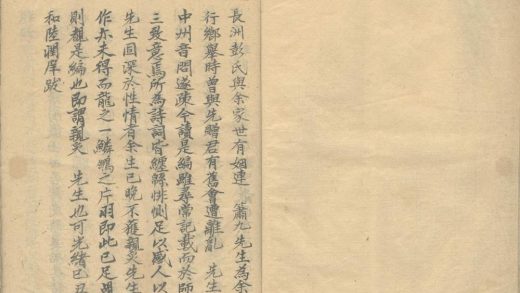 長洲彭氏與余家世有姻連 簫九先生為余
行鄉舉時曾與先贈君有舊會遭離亂 先生
中州音問遂疎今讀是編雖尋常記載而於師
三致意焉所為詩詞皆纏緜悱惻足以感人以
先生固深於性情者余生已晚不獲親炙先生
作亦未得而龍之一鱗鳳之片羽即此已足
則覩是編也即謂親炙 先生也可光緒己丑
和陸潤庠跋